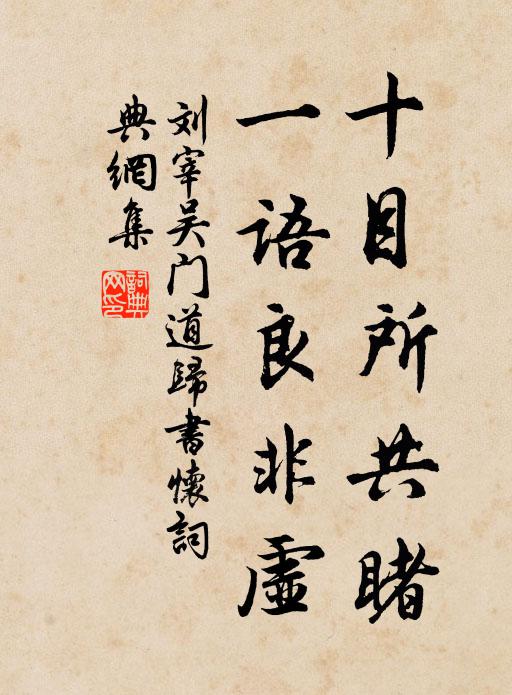 十目所共睹
一語良非虛
刘宰吴门道歸書懷詞
典網集
詞典
网印